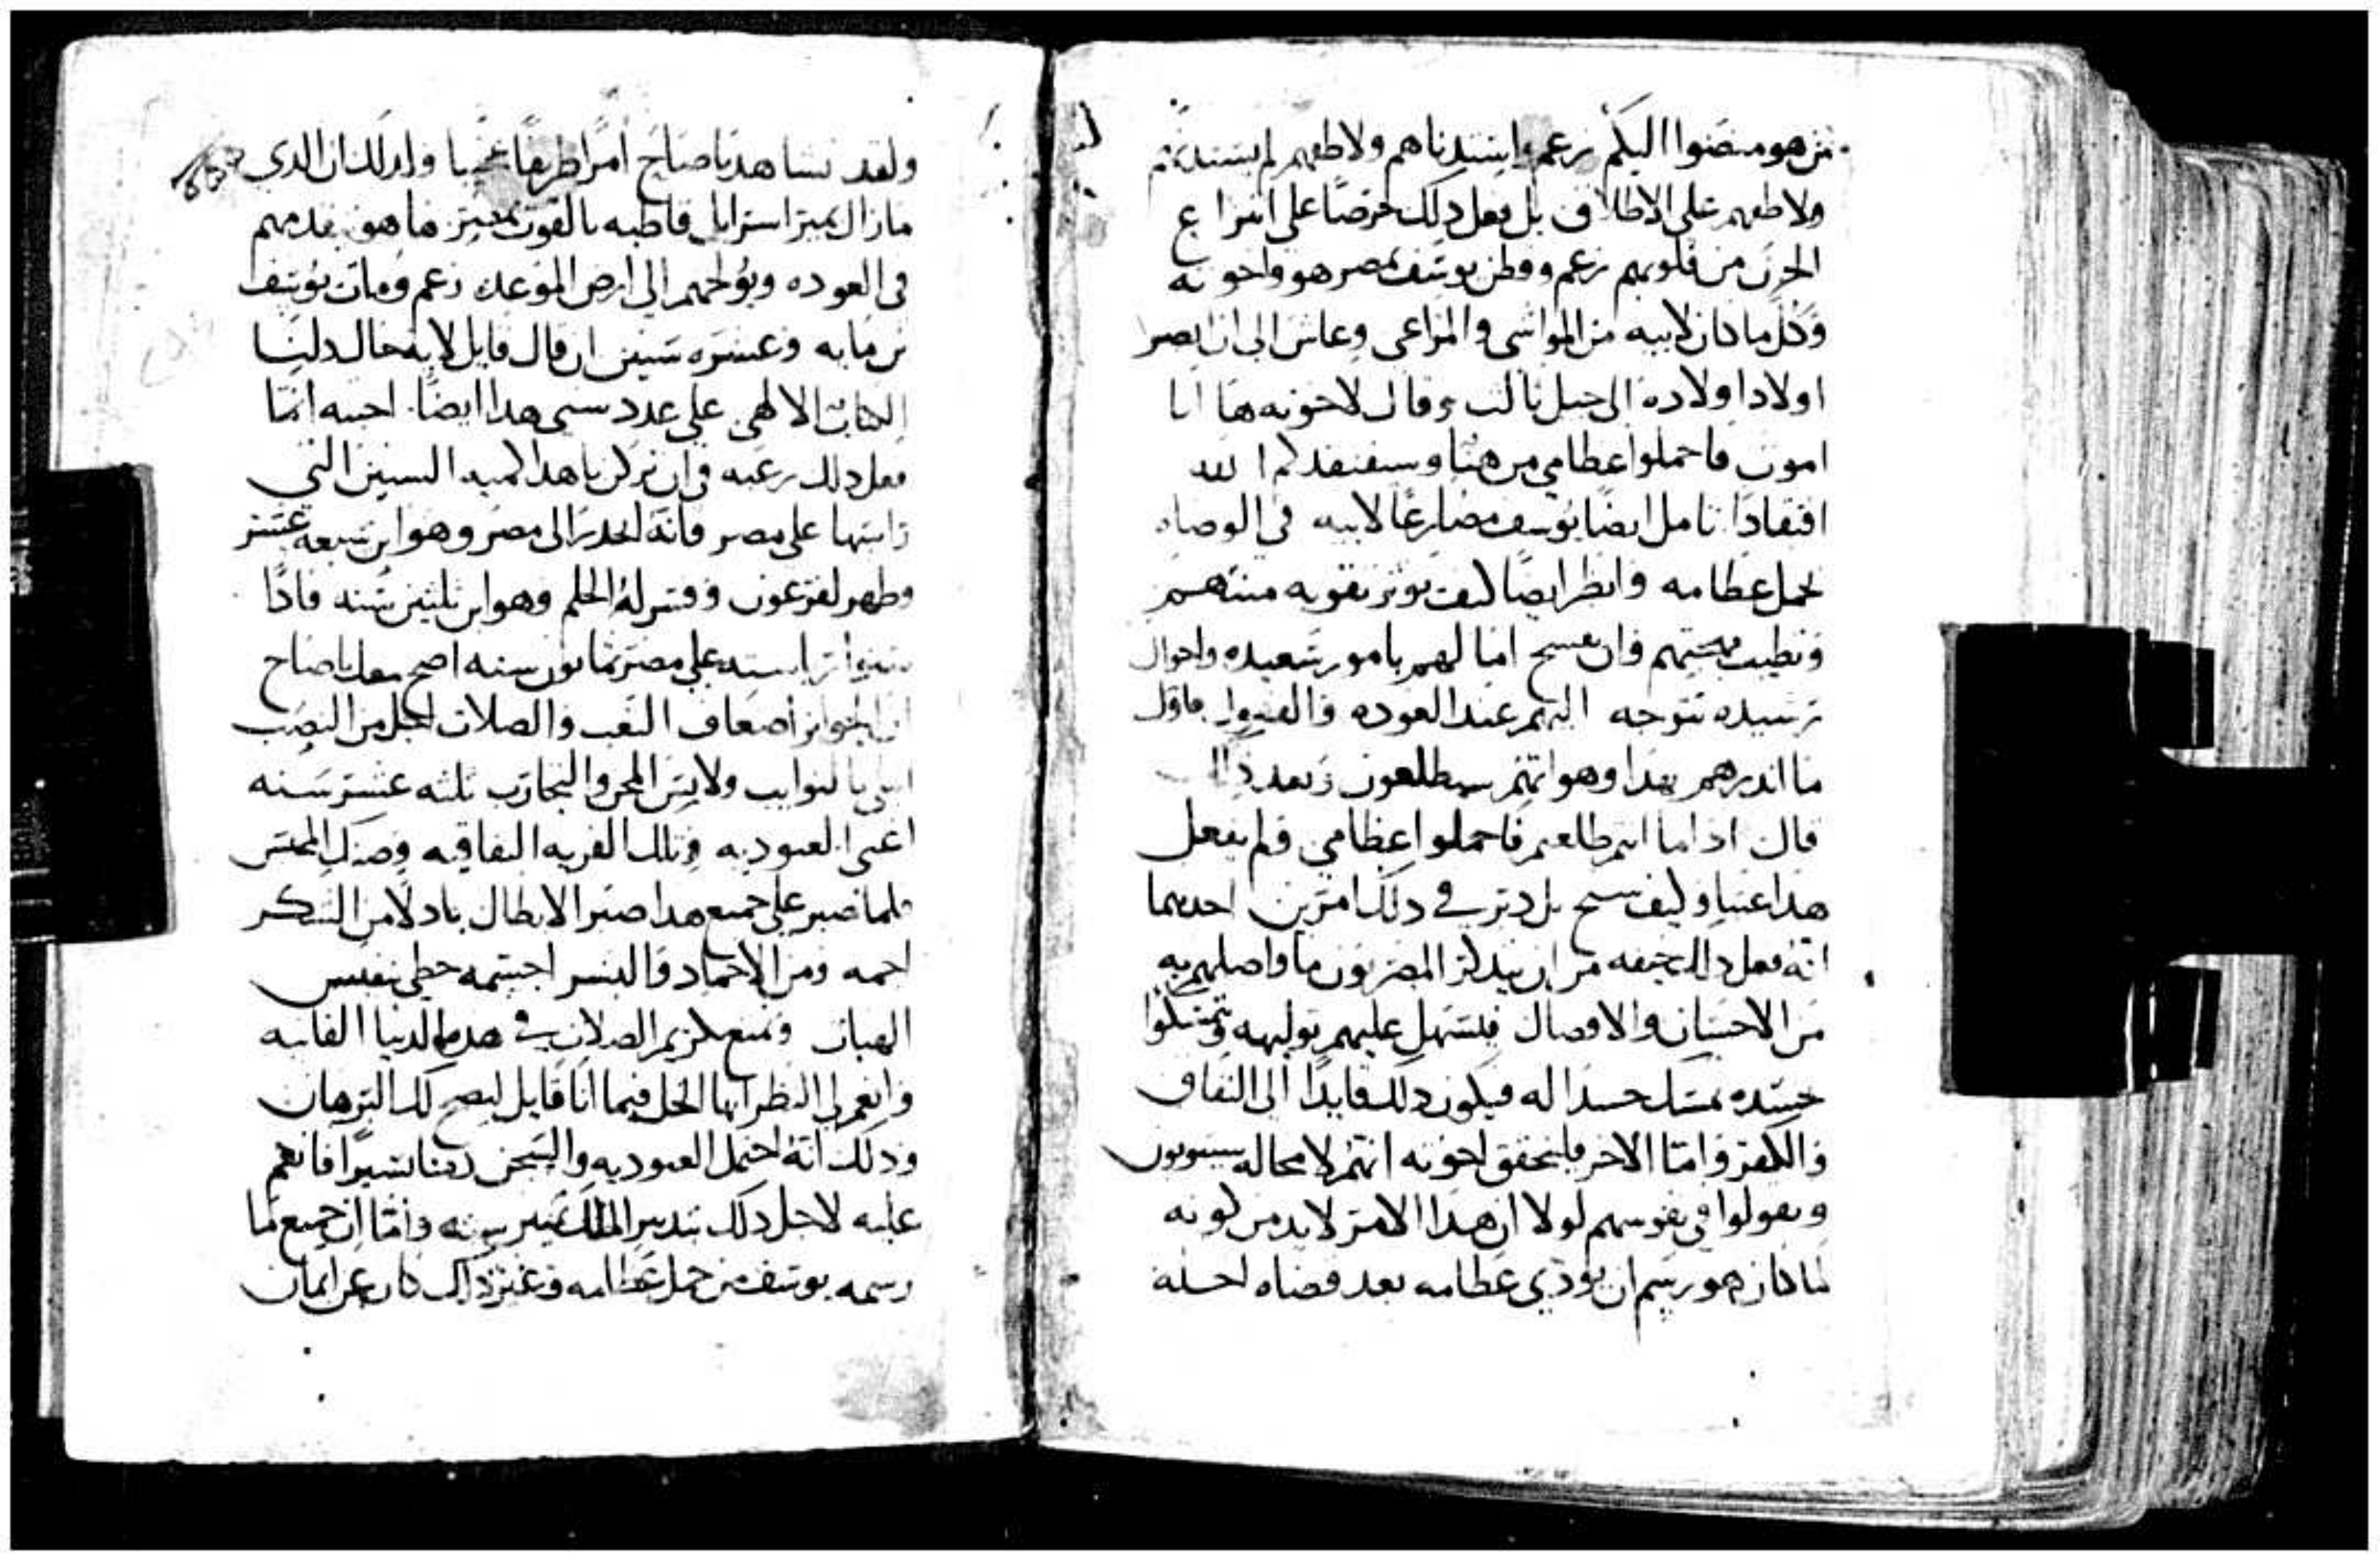 من هو مبغضوا اليكم زعم واستدناهم ولاطفهم لم يستدنهم
ولاطفهم على الاطلاق بل فعل دلك حرصًا على انتزاع
الحزن من قلوبهم زعم وقطن يوسف بمصر هو واخوته
وكل ما كان لابيه من المواشي والمراعي وعاش الى ان ابصر
اولاد اولاده الى جيل ثالث وقال لاخوته ها انا
اموت فاحملوا عظامي من هنا وسيفتقدكم الله
افتقادًا تامل ايضًا يوسف مضارعًا لابيه في الوصاه
بحمل عظامه وانظر ايضًا كيف يوثر تقويه منتهم
وتطييب مهجتهم وان يفسح امالهم بامور سعيده واحوال
رشيده تتوجه اليهم عند العوده والقفول فاول
ما اندرهم بهدا وهو انهم سيطلعون وبعد دلك
قال ادا ما انتم طالعتم فاحملوا عظامي فلم يفعل
هدا عبثا وكيف سح بل دبر في دلك امرين احدهما
انه فعل دلك خيفه من ان يتدكر المصريون ما واصلهم به
من الاحسان والافضال فيسهل عليهم تواليهه ويتمسكوا
جسده تمسك حسدا له فيكون دلك قايدًا الى النفاق
والكفر واما الاخر فليتحقق اخوته انهم لا محاله سيتوبون
ويقولوا في نفوسهم لولا ان هدا الامر لابد من كونه
لما كان هو رسم ان يودي عظامه بعد قضاه اجله
ولقد نشاهد يا صاح امرًا طريفًا عجيبا وادلك ان الدي
مازال بمير اسرايل قاطبه بالقوت بمصر ها هو يقدمهم
في العوده ويولجهم الى ارض الموعد زعم ومات يوسف
بن مايه وعشره سنين ان قال قايل لايه حال دلنا
الكتاب الالهي على عدد سني هدا ايضًا اجبته انما
فعل دلك رغبه في ان تركن يا هدا كميه السنين التي
راسها على مصر فانه انحدر الى مصر وهو ابن سبعه عشر
وظهر لفرعون وفسر له الحلم وهو ابن ثلثين سنه فادًا
سنوا راسته على مصر ثمانون سنه اصح يا صاح
ان الجوايز اضعاف التعب والصلات اجل من النصب
ابتلي بالنوايب ولابس المحن والتجارب ثلثه عشر سنه
اعني العبوديه وتلك الفريه النفاقيه وضنك المحبس
فلما صبر على جميع هدا صبر الابطال بادلًا من الشكر
اجمه ومن الاحماد والبشر اجسمه حظي بنفيس
الهبات ومتع بكريم الصلات في هده الدنيا الفانيه
وانعم لي النظر ايها الخل فيما انا قايل ليصح لك البرهان
ودلك انه احتمل العبوديه والسجن زمنا يسيرًا فانعم
عليه لاجل دلك بتدبير الملك ثمنين سنه واما ان جميع ما
رسمه يوسف من حمل عظامه وغير داك كان عن ايمان